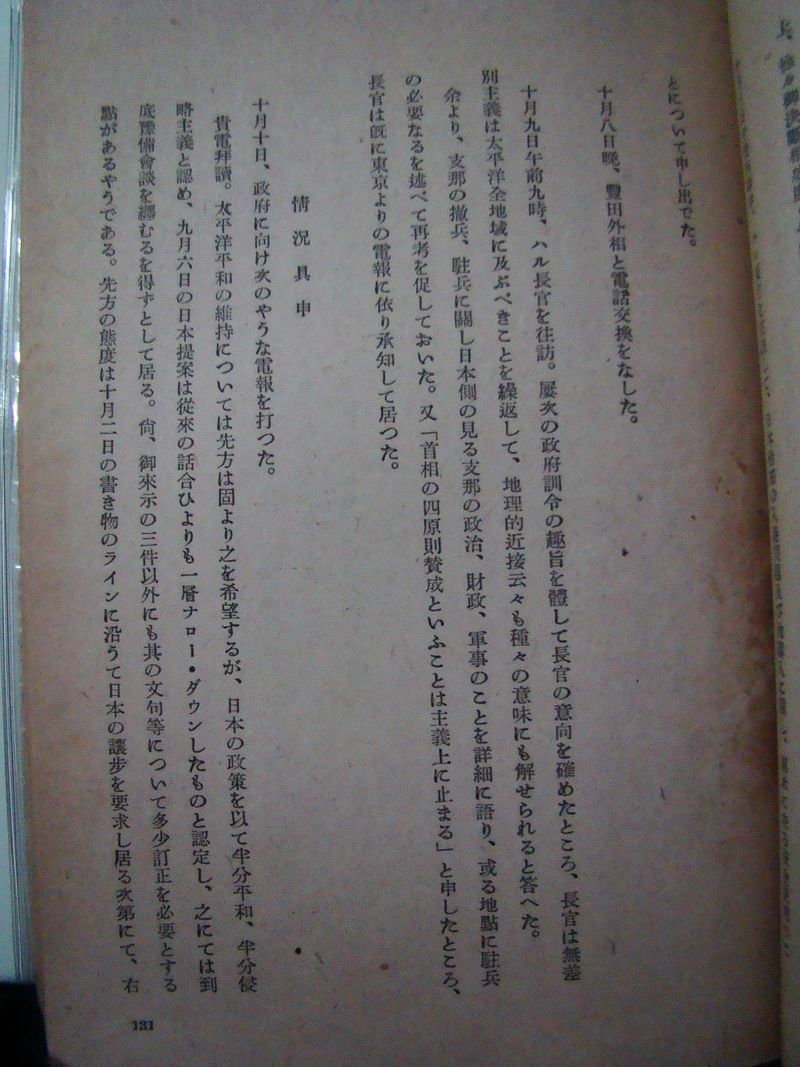 とについて申し出でた。
十月八日晩、豐田外相と電話交換をなした。
十月九日午前九時、ハル長官を往訪。屡次の政府訓令の趣旨を體して長官の意向を確めたところ、長官は無差
別主義は太平洋全地域に及ぶべきことを繰返して、地理的近接云々も種々の意味にも解せられると答へた。
余より、支那の撤兵、駐兵に關し日本側の見る支那の政治、財政、軍事のことを詳細に語り、或る地點に駐兵
の必要なるを述べて再考を促しておいた。又「首相の四原則賛成といふことは主義上に止まる」と申したところ、
長官は既に東京よりの電報に依り承知して居つた。
情況具申
十月十日、政府に向け次のやうな電報を打つた。
貴電拜讀。太平洋平和の維持については先方は固より之を希望するが、日本の政策を以て半分平和、半分侵
略主義と認め、九月六日の日本提案は從來の話合ひよりも一層ナロー・ダウンしたものと認定し、之にては到
底豫備會談を纒むるを得ずとして居る。尙、御來示の三件以外にも其の文句等について多少訂正を必要とする
點があるやうである。先方の態度は十月二日の書き物のラインに沿うて日本の讓步を要求し居る次第にて、右
131